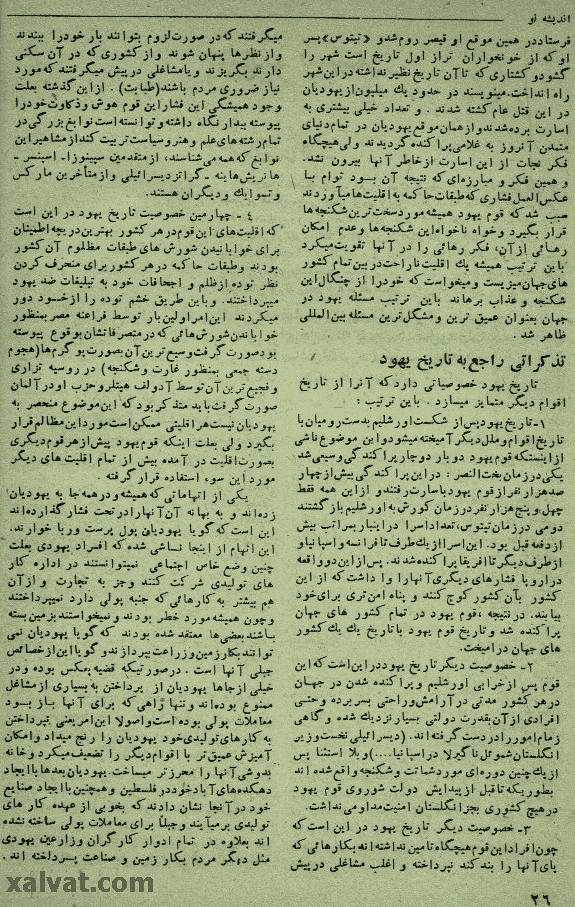 اندیشه نو
فرستاد در همین موقع او قیصر روم شد و «تیتوس» پسر
او که از خونخواران تراز اول تاریخ است شهر را
گشود و کشتاری که تا آن تاریخ نظیر نداشته در این شهر
راه انداخت. مینویسند در حدود یك میلیون از یهودیان
در این قتل عام کشته شدند . و تعداد خیلی بیشتری به
اسارت برده شدند و از همان موقع یهودیان در تمام دنیای
متمدن آنروز به غلامی پراکنده گردیدند ولی هیچگاه
فکر نجات از این اسارت از خاطر آنها بیرون نشد.
و همین فکر و مبارزه‌ای که نتیجه آن بود توام با
عکس‌العمل فشاری که طبقات حاکمه به اقلیت‌ها میآوردند
سبب شد که قوم یهود همیشه مورد سخت‌ترین شکنجه‌ها
قرار بگیرد و خواه ناخواه این شکنجه‌ها و عدم امکان
رهائی از آن، فکر رهائی را در آنها تقویت میکرد
باین ترتیب همیشه یك اقلیت ناراحت در بین تمام کشور
های جهان میزیست و میخواست که خود را از چنگال این
شکنجه و عذاب برهاند باین ترتیب مسئله یهود در
جهان بعنوان عمیق ترین و مشکل ترین مسئله بین‌المللی
ظاهر شد .
تذکراتی راجع به تاریخ یهود
تاریخ یهود خصوصیاتی دارد که آنرا از تاریخ
اقوام دیگر متمایز میسازد . باین ترتیب :
۱- تاریخ یهود پس از شکست اورشلیم بدست رومیان با
تاریخ اقوام و ملل دیگر آمیخته میشود و این موضوع ناشی
از اینستکه قوم یهود دو بار دوچار پراکندگی وسیعی شد
یکی در زمان بخت‌النصر : در این پراکندگی بیش از چهار
صد هزار نفر از قوم یهود باسارت رفتند و از این همه فقط
چهل و پنج هزار نفر در زمان کورش به اورشلیم باز گشتند
دومی در زمان تیتوس، تعداد اسرا در اینبار بمراتب بیش
از دفعه قبل بود. این اسرا از یك طرف تا فرانسه و اسپانیا و
از طرف دیگر تا آفریقا پراکنده شدند. پس از این دو واقعه
در اروپا فشارهای دیگری آنها را وا داشت که از این
کشور بآن کشور کوچ کنند و پناه امن‌تری برای خود
بیابند. در نتیجه ، قوم یهود در تمام کشور های جهان
پراکنده شد و تاریخ قوم یهود با تاریخ یك یك کشور
های جهان درآمیخت.
۲- خصوصیت دیگر تاریخ یهود در این است که این
قوم پس از خرابی اورشلیم و پراکنده شدن در جهان
در هر کشور مدتی در آرامش و راحتی بسر برده و حتی
افرادی از آن بقدرت دولتی بسیار نزدیك شده و گاهی
زمام امور را در دست گرفته‌اند. (دیسرائیلی نخست وزیر
انگلستان شموئل ناگیرلا در اسپانیا....) و بلا استثنا پس
از یك چنین دوره‌ای مورد شماتت و شکنجه واقع شده‌اند
بطوریکه تا قبل از پیدایش دولت شوروی قوم یهود
در هیچ کشوری بجز انگلستان امنیت مداومی نداشت.
۳- خصوصیت دیگر تاریخ یهود در این است که
چون افراد این قوم هیچگاه تامین نداشته‌اند بکارهائی که
پای آنها را بند کند نپرداخته و اغلب مشاغلی در پیش
میگرفتند که در صورت لزوم بتوانند بار خود را ببندند
و از نظرها پنهان شوند و از کشوری که در آن سکنی
دارند بگریزند و یا مشاغلی در پیش میگرفتند که مورد
نیاز ضروری مردم باشند (طبابت) . از این گذشته بعلت
وجود همیشگی این فشار این قوم هوش و ذکاوت خود را
پیوسته بیدار نگاه داشته و توانسته است نوابغ بزرگی در
تمام رشته‌های علم و هنر و سیاست تربیت کند از مشاهیر این
نوابغ که همه می‌شناسند، از متقدمین سپینوزا - اسپنسر -
هانریش هاینه - گرانز دیسرائیلی و از متأخرین مارکس
و تسوایك و دیگران هستند.
٤ - چهارمین خصوصیت تاریخ یهود در این است
که اقلیت‌های این قوم در هر کشور بهترین دریچه اطمینان
برای خوابانیدن شورش های طبقات مظلوم آن کشور
بودند و طبقات حاکمه در هر کشور برای منحرف کردن
نظر توده از ظلم و اجحافات خود به تبلیغات ضد یهود
میپرداختند. و باین طریق خشم توده را از خود دور
میکردند این امر اولین بار توسط فراعنه مصر بمنظور
خواباندن شورش‌هائی که در متصرفاتشان بوقوع پیوسته
بود صورت گرفت و سیع ترین آن بصورت پوگرم‌ها (هجوم
دسته جمعی بمنظور غارت و شکنجه) در روسیه تزاری
و فجیع ترین آن توسط آدولف هیتلر و حزب او در آلمان
صورت گرفت باید متذکر بود که این موضوع منحصر به
یهودیان نیست هر اقلیتی ممکن است مورد این مظالم قرار
بگیرد ولی بعلت اینکه قوم یهود پیش از هر قوم دیگری
بصورت اقلیت در آمده بیش از تمام اقلیت های دیگر
مورد این سوء استفاده قرار گرفته .
یکی از اتهاماتی که همیشه و در همه جا به یهودیان
زده‌اند و به بهانه آن آنها را در تحت فشار گذارده‌اند
این است که گویا یهودیان پول پرست و ربا خوارند.
این اتهام از اینجا ناشی شده که افراد یهودی بعلت
چنین وضع خاص اجتماعی نمیتوانستند در اداره کار
های تولیدی شرکت کنند و جز به تجارت و از آن
هم بیشتر به کارهائی که جنبه پولی دارد نمیپرداختند
و چون همیشه مورد خطر بودند و نمیخواستند بزمین بسته
باشند بعضی‌ها معتقد شده بودند که گویا یهودیان نمی
توانند بکار زمین و زراعت بپردازند و گویا این از خصائص
جبلی آنها است . در صورتیکه قضیه بعکس بوده و در
خیلی از جاها یهودیان از پرداختن به بسیاری از مشاغل
ممنوع بوده‌اند و تنها راهی که برای آنها باز بود
معاملات پولی بوده است و اصولا این امر یعنی نپرداختن
به کارهای تولیدی خود یهودیان را رنج میداد و امکان
آمیزش عمیق‌تر با اقوام دیگر را تضعیف میکرد و خانه
بدوشی آنها را محرز تر میساخت. یهودیان بعدها با ایجاد
دهکده‌های آباد خود در فلسطین و همچنین با ایجاد صنایع
خود در آنجا نشان دادند که بخوبی از عهده کار های
تولیدی برمیآیند و جبلتاً برای معاملات پولی ساخته نشده
اند بعلاوه در تمام ادوار کارگران و زارعین یهودی
مثل دیگر مردم بکار زمین و صناعت پرداخته اند .
xalvat.com
٢٦